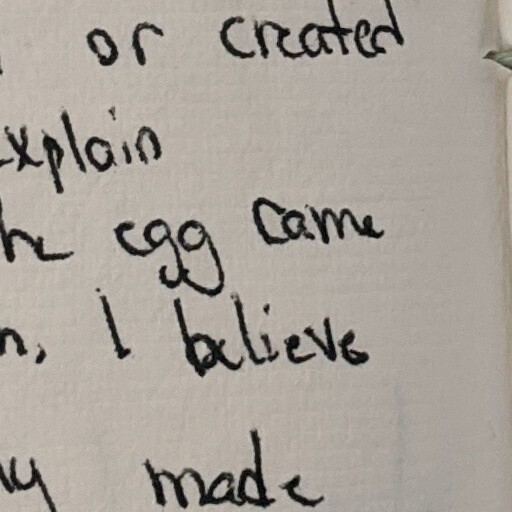 or created
explain
he egg came
n, I believe
y made